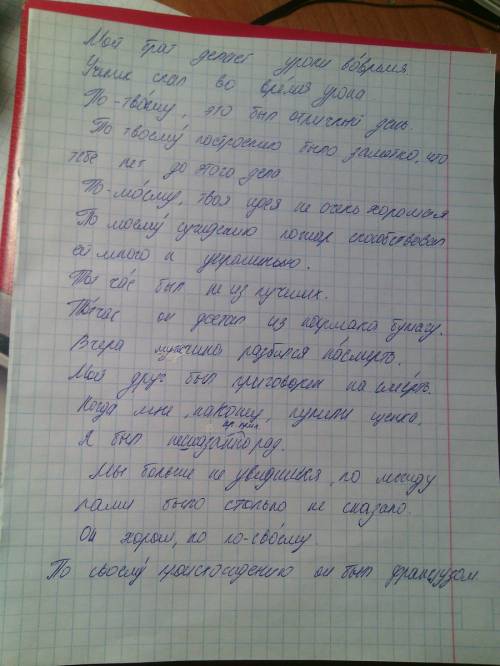 Мой брат делает уроки во́время.
Ученик спал во вре́мя урока
По-тво́ему, это был отличный день.
По твоему́ настроению было заметно, что
тебе нет до этого дела
По-мо́ему, твоя идея не очень хорошая
По моему́ суждению пожар способствовал
ей много к украшению.
Тот ча́с был не из лучших.
То́тчас он достал из кармана бумагу.
Вчера мужчина разбился на́смерть.
Мой друг был приговорен на сме́рть.
Когда мне, наконец, купили щенка,
я был рад.
Мы больше не увидимся, но между
нами было столько не сказано.
Он хорош, но по-сво́ему.
По своему́ происхождению он был французом.